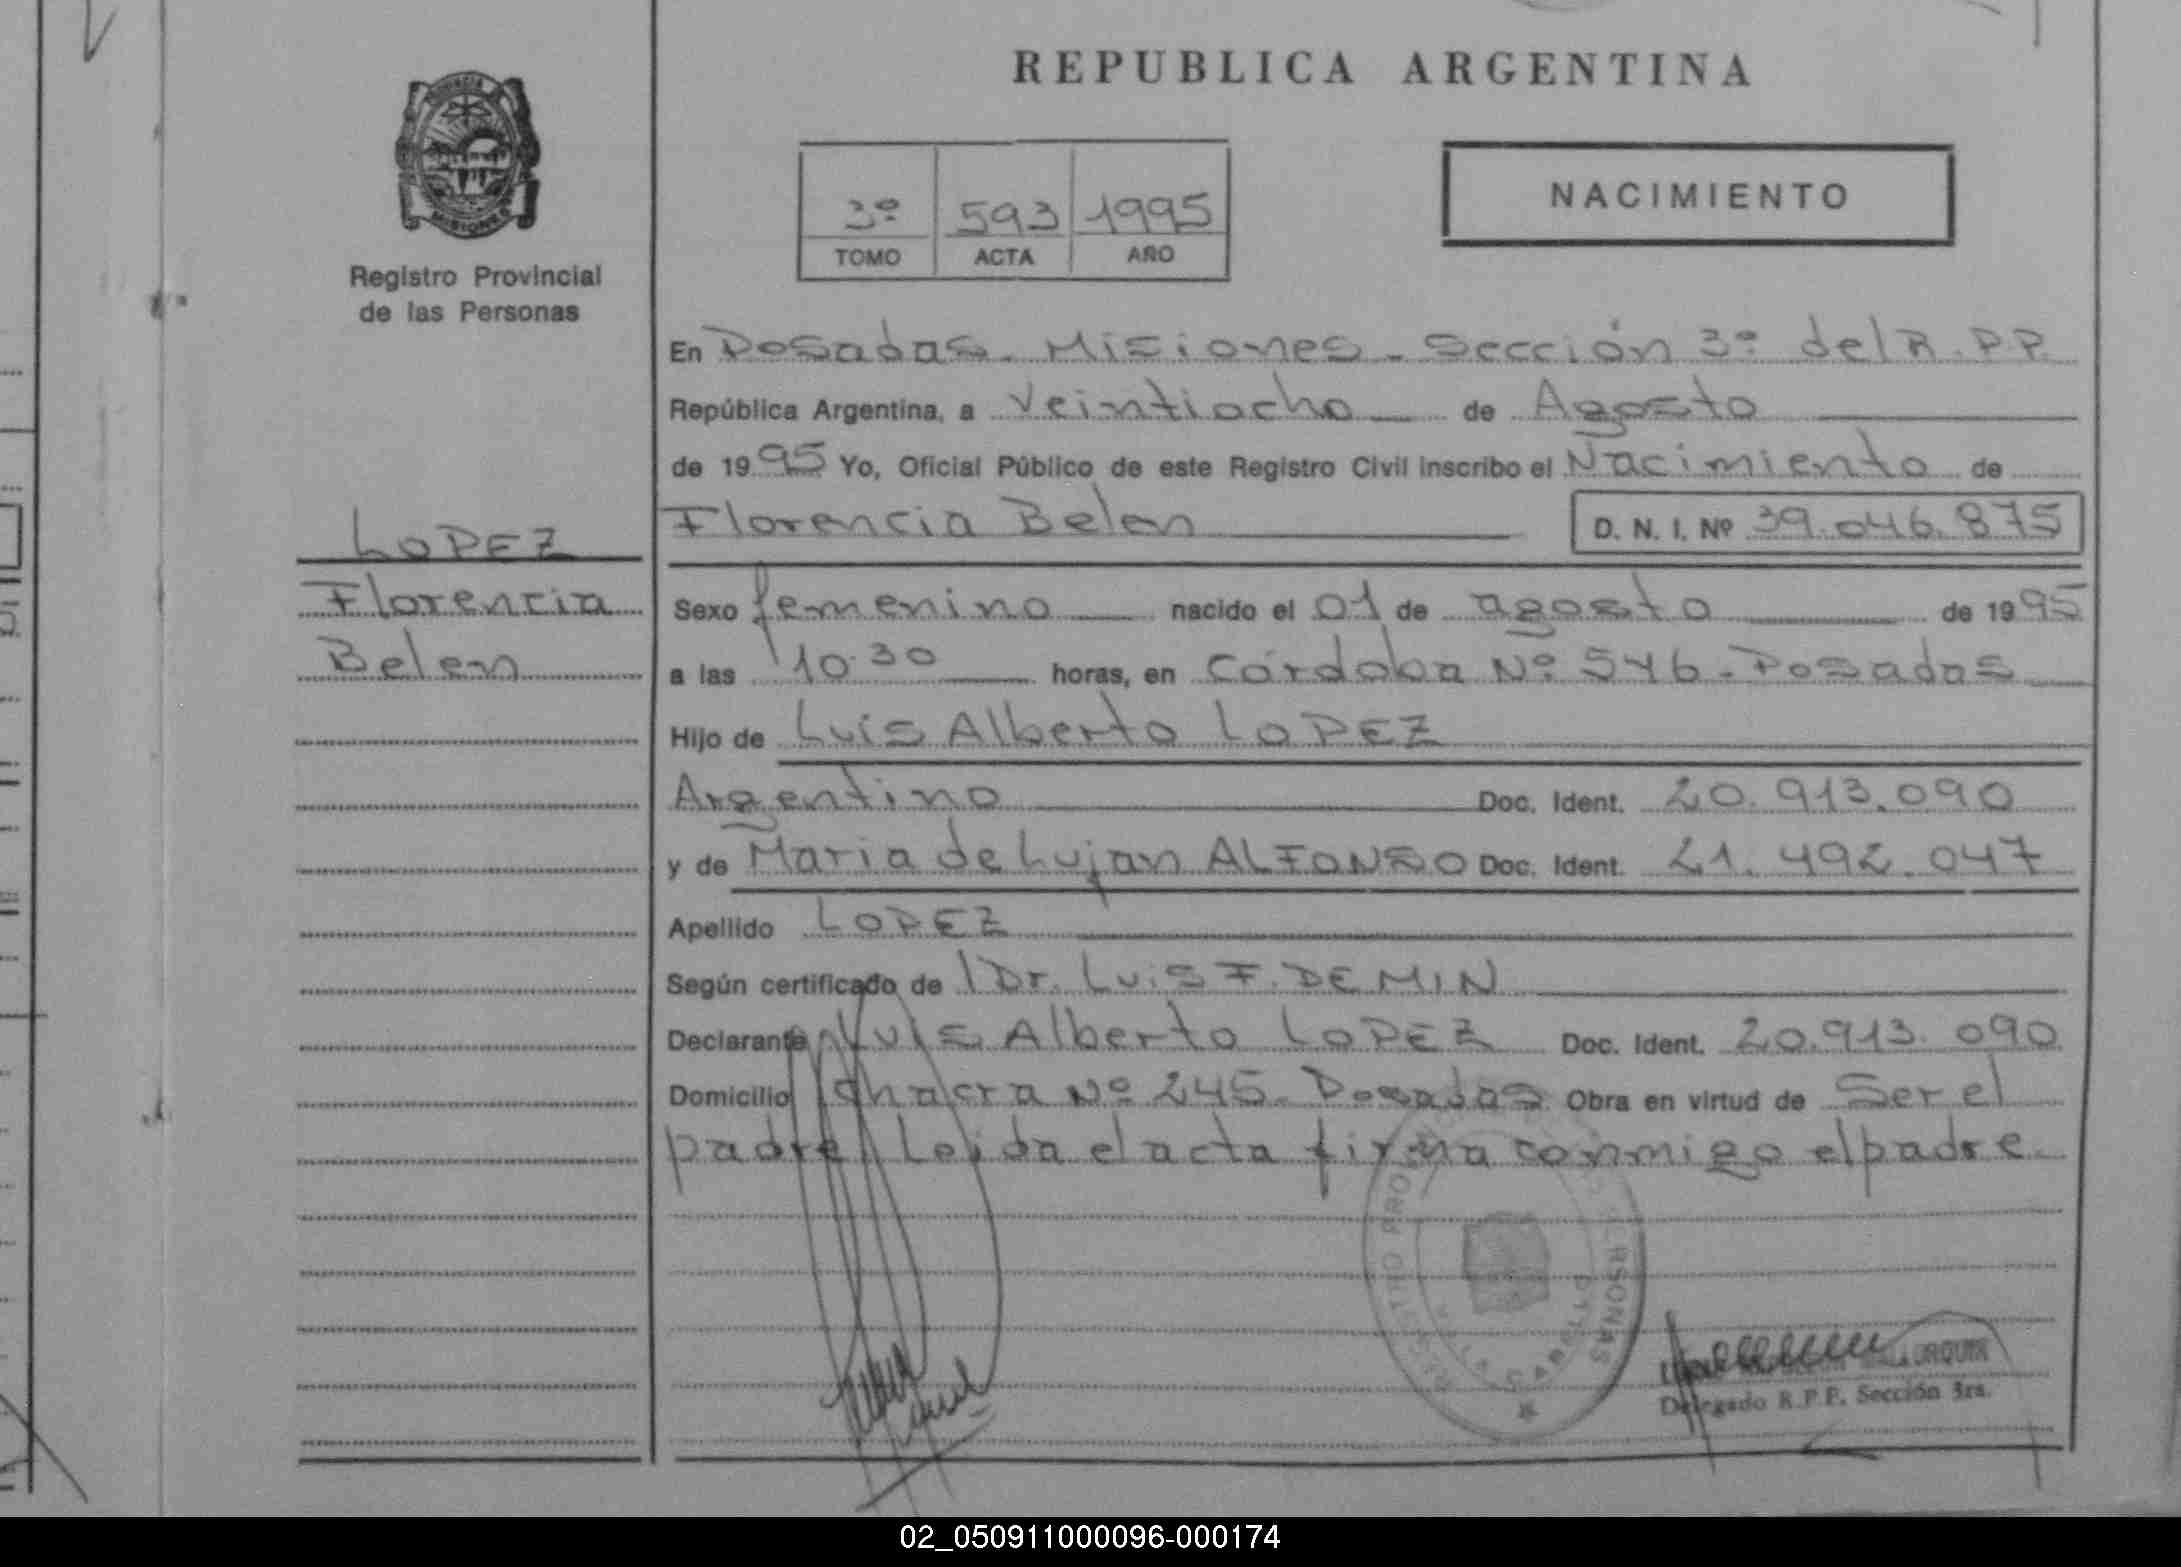 REPUBLICA ARGENTINA
PROVINCIA
MISIONES
Registro Provincial
de las Personas
3º 593 1995
TOMO ACTA AÑO
NACIMIENTO
En Posadas - Misiones - Sección 3º del R.P.P.
República Argentina, a Veintiocho de Agosto
de 1995 Yo, Oficial Público de este Registro Civil inscribo el Nacimiento de
Florencia Belen D. N. I. Nº 39.046.875
LOPEZ
Florencia
Belen
Sexo femenino nacido el 01 de agosto de 1995
a las 10:30 horas, en Córdoba Nº 546 - Posadas
Hijo de Luis Alberto LOPEZ
Argentino Doc. Ident. 20.913.090
y de Maria de Lujan ALFONSO Doc. Ident. 21.492.047
Apellido LOPEZ
Según certificado de Dr. Luis F. DEMIN
Declarante Luis Alberto LOPEZ Doc. Ident. 20.913.090
Domicilio Chacra Nº 245 - Posadas Obra en virtud de Ser el
padre Leida el acta firma conmigo el padre.
REGISTRO PRO PERSONAS
POSADAS
URQUIZA
Delegado R.P.P. Sección 3ra.
02_050911000096-000174